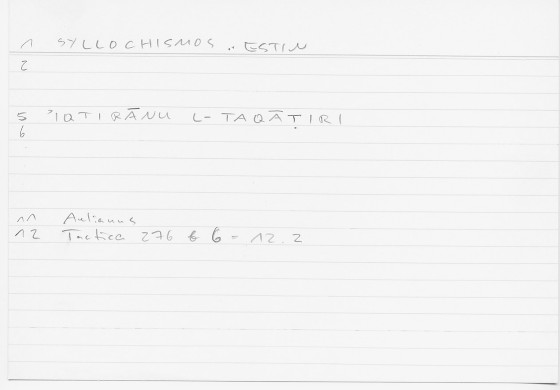 1 SYLLOCHISMOS .. ESTIN
2
5 'IQTIRĀNU L-TAQĀṬIRI
6
11 Aelianus
12 Tactica 276 b 6 - 12. 2